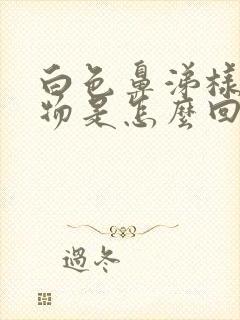 白色鼻涕樣
物是怎麼回
過冬